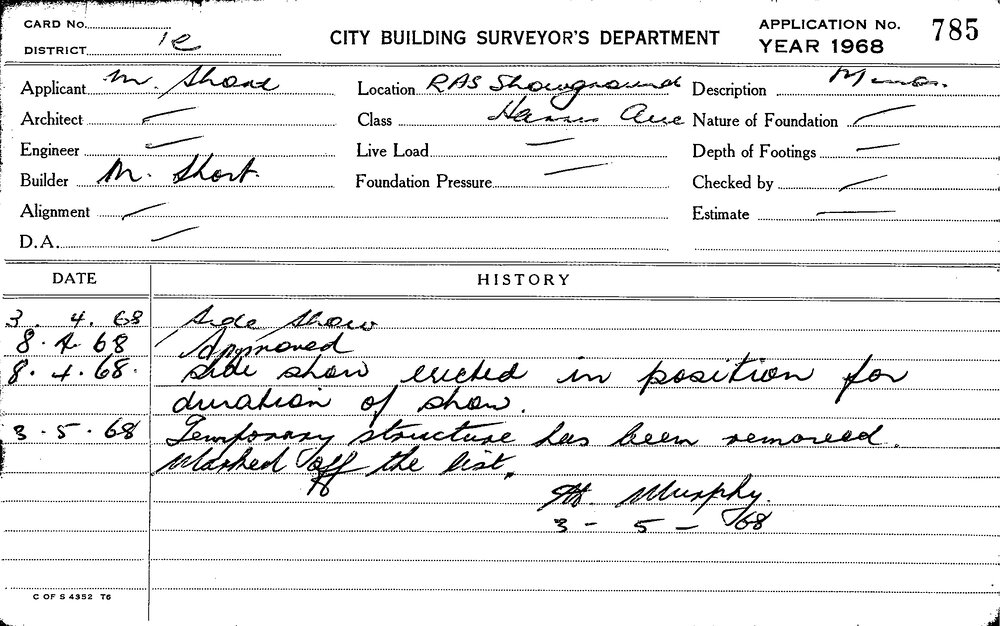 CARD No.
DISTRICT 1e
CITY BUILDING SURVEYOR'S DEPARTMENT
APPLICATION No. 785
YEAR 1968
Applicant M. Short
Location RAS Showground
Description Minor.
Architect —
Class Harris Ave
Nature of Foundation —
Engineer —
Live Load —
Depth of Footings —
Builder M. Short.
Foundation Pressure —
Checked by —
Alignment —
Estimate —
D.A. —
DATE HISTORY
3. 4. 68 Side Show
8. 4. 68 Approved
8. 4. 68. Side show erected in position for
duration of show.
3. 5. 68 Temporary structure has been removed.
Marked off the list.
Murphy.
3 - 5 - 68
C OF S 4352 T6